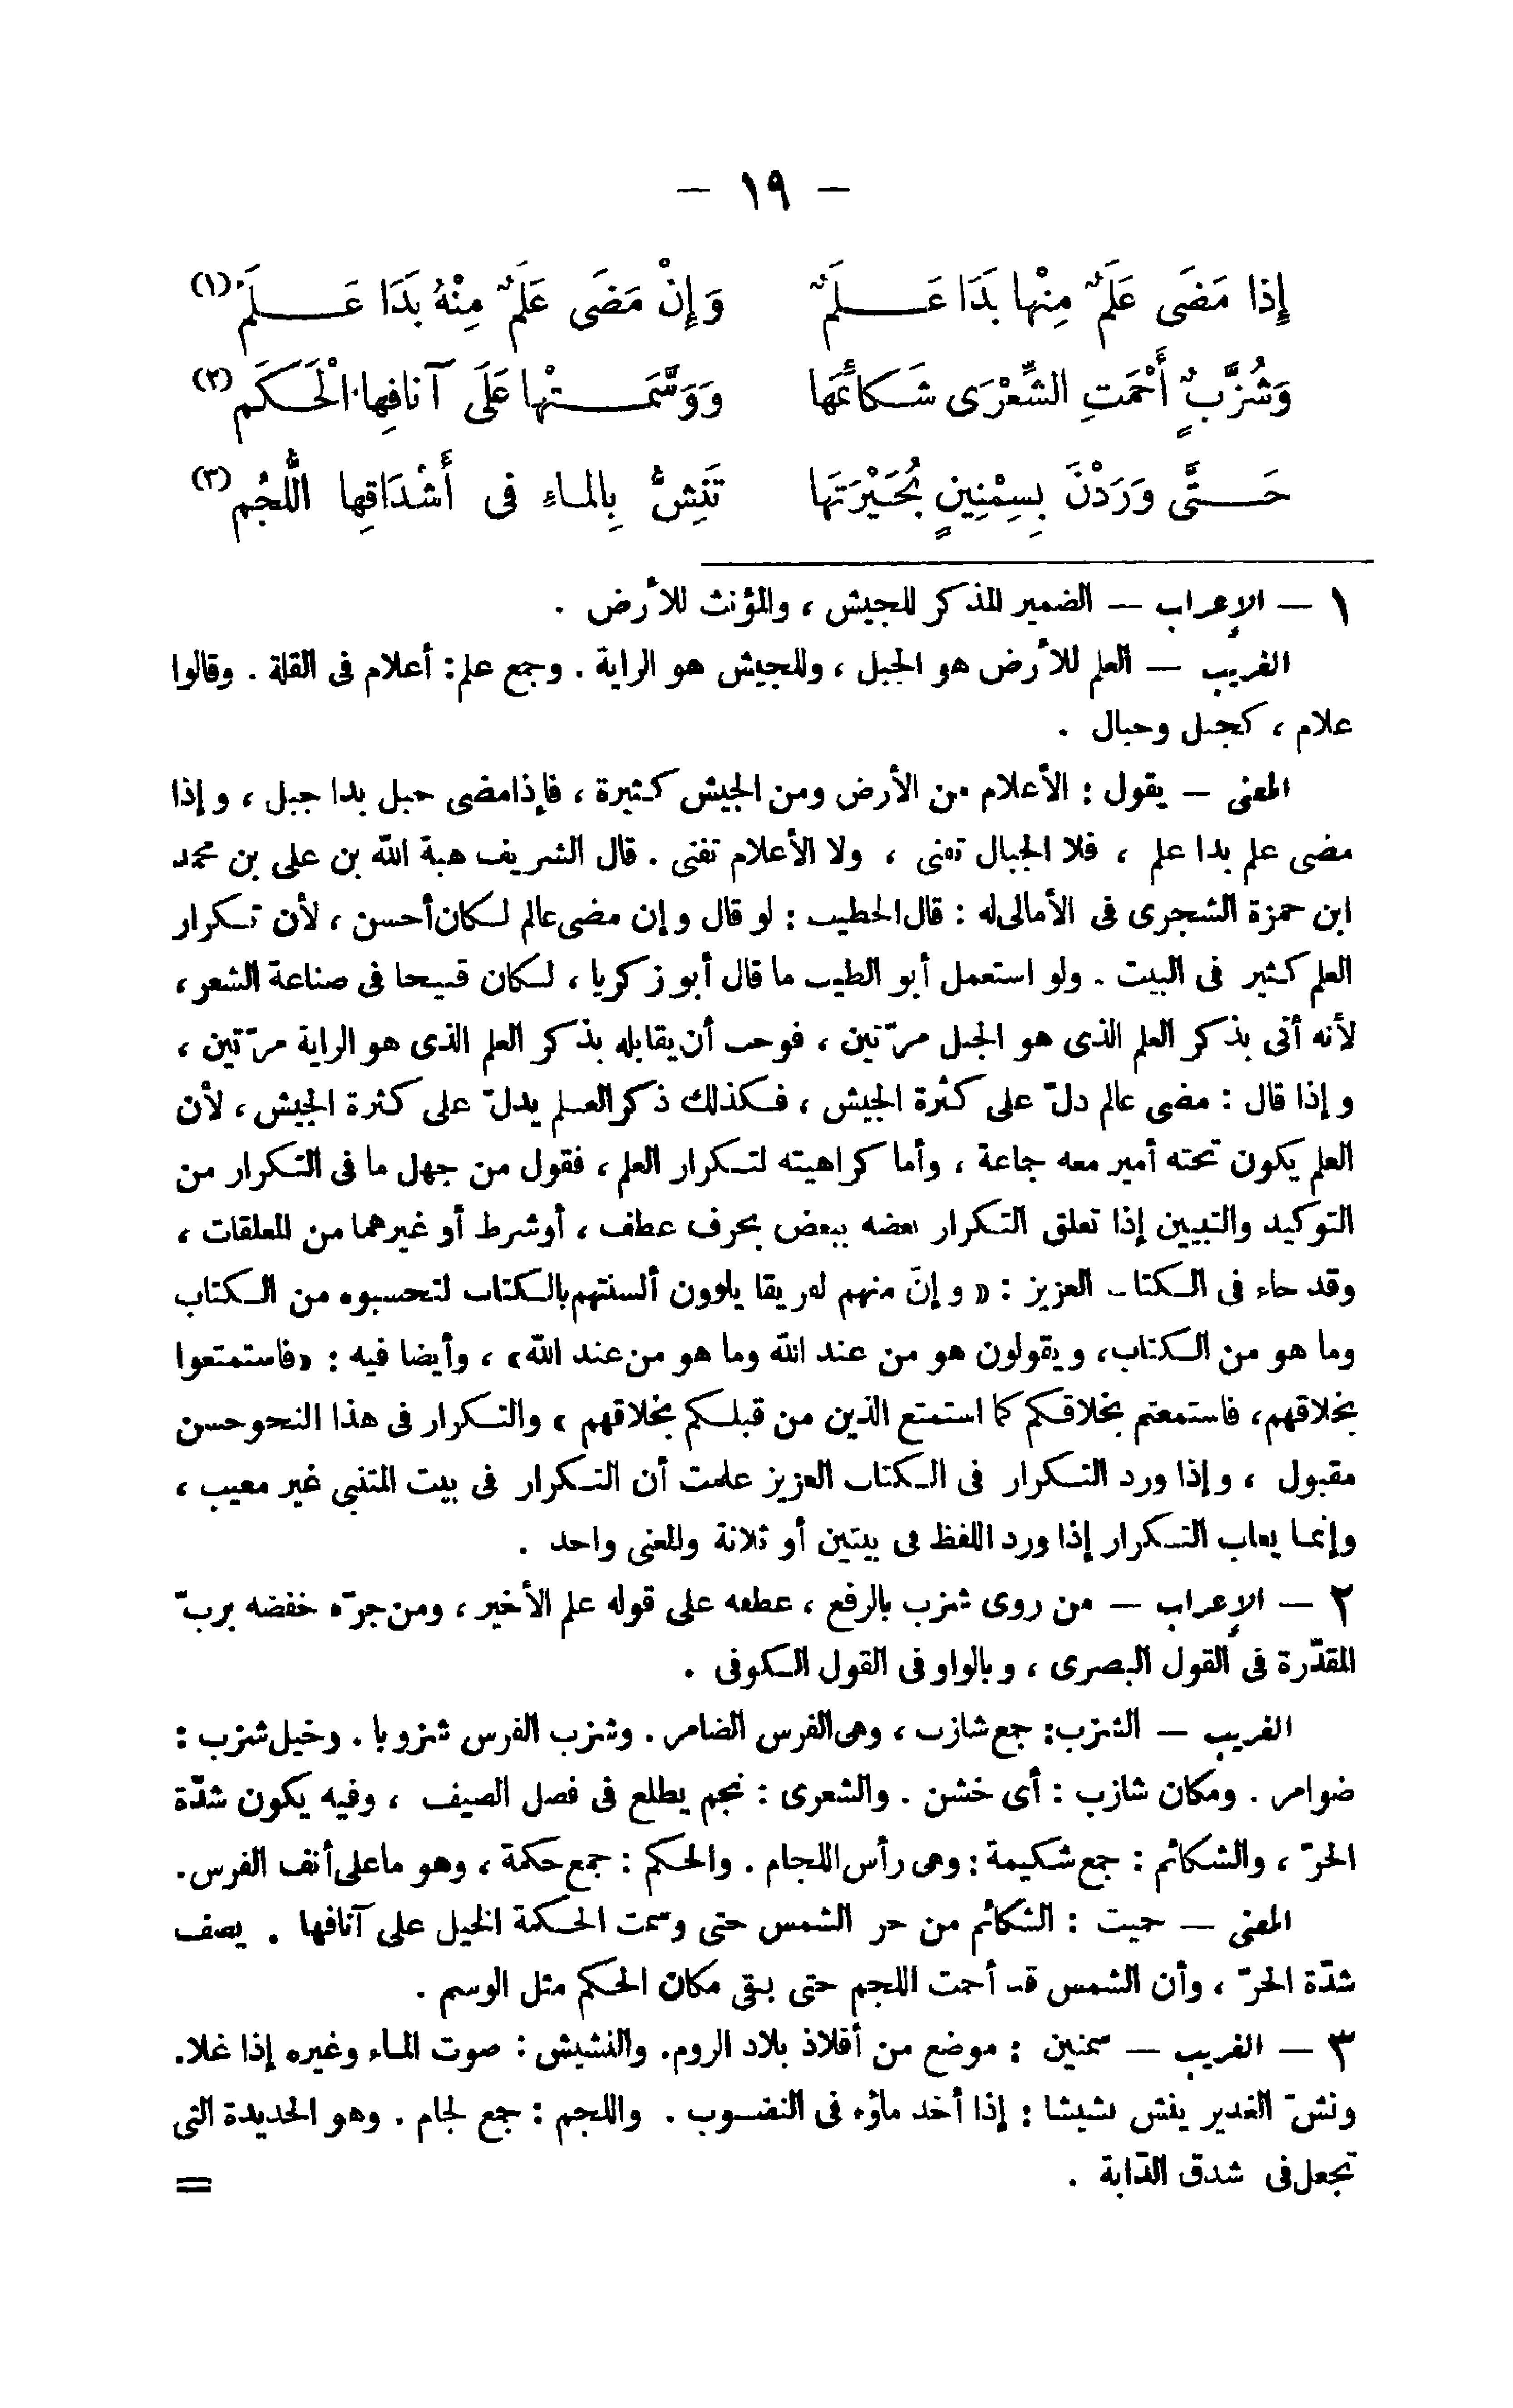 — ١٩ —
إِذا مَضَى عَلَمٌ مِنْها بَدَا عَـلَمٌ وَإِنْ مَضَى عَلَمٌ مِنْهُ بَدَا عَـلَمُ (١)
وَشُزَّبٌ أَحْمَتِ الشِّعْرَى شَكائِمَها وَوَسَّمَتْها عَلَى آنافِها الْحَكَمُ (٢)
حَتَّى وَرَدْنَ بِسِمْنِينٍ بُحَيْرَتَها تَنِشُّ بِالماءِ فى أَشْدَاقِها اللُّجُمُ (٣)
١ — الإعراب — الضمير المذكر للجيش ، والمؤنث للأرض .
الغريب — العلم للأرض هو الجبل ، وللجيش هو الراية . وجمع علم: أعلام فى القلة . وقالوا
علام ، كجبل وجبال .
المعنى — يقول : الأعلام من الأرض ومن الجيش كثيرة ، فإذا مضى جبل بدا جبل ، وإذا
مضى علم بدا علم ، فلا الجبال تفنى ، ولا الأعلام تفنى . قال الشريف هبة الله بن على بن محمد
ابن حمزة الشجرى فى الأمالى له : قال الخطيب : لو قال وإن مضى عالم لكان أحسن ، لأن تكرار
العلم كثير فى البيت . ولو استعمل أبو الطيب ما قال أبو زكريا ، لكان قبيحا فى صناعة الشعر ،
لأنه أتى بذكر العلم الذى هو الجبل مرّتين ، فوجب أن يقابله بذكر العلم الذى هو الراية مرّتين ،
وإذا قال : مضى عالم دلّ على كثرة الجيش ، فكذلك ذكر العلم يدلّ على كثرة الجيش ، لأن
العلم يكون تحته أمير معه جماعة ، وأما كراهيته لتكرار العلم ، فقول من جهل ما فى التكرار من
التوكيد والتبيين إذا تعلق التكرار بعضه ببعض بحرف عطف ، أو شرط أو غيرهما من المعلقات ،
وقد جاء فى الكتاب العزيز : « وإنّ منهم لفريقا يلوون ألسنتهم بالكتاب لتحسبوه من الكتاب
وما هو من الكتاب، ويقولون هو من عند الله وما هو من عند الله» ، وأيضا فيه : «فاستمتعوا
بخلاقهم، فاستمتعتم بخلاقكم كما استمتع الذين من قبلكم بخلاقهم » والتكرار فى هذا النحو حسن
مقبول ، وإذا ورد التكرار فى الكتاب العزيز علمت أن التكرار فى بيت المتنبى غير معيب ،
وإنما يعاب التكرار إذا ورد اللفظ فى بيتين أو ثلاثة والمعنى واحد .
٢ — الإعراب — من روى شزب بالرفع ، عطفه على قوله علم الأخير ، ومن جرّه خفضه بربّ
المقدّرة فى القول البصرى ، وبالواو فى القول الكوفى .
الغريب — الشزب: جمع شازب ، وهى الفرس الضامر . وشزب الفرس شزوبا . وخيل شزب :
ضوامر . ومكان شازب : أى خشن . والشعرى : نجم يطلع فى فصل الصيف ، وفيه يكون شدّة
الحرّ ، والشكائم : جمع شكيمة : وهى رأس اللجام . والحكم : جمع حكمة ، وهو ما على أنف الفرس.
المعنى — حميت : الشكائم من حر الشمس حتى وسمت الحكمة الخيل على آنافها . يصف
شدّة الحرّ ، وأن الشمس قد أحمت اللجم حتى بقى مكان الحكم مثل الوسم .
٣ — الغريب — سمنين : موضع من أفلاذ بلاد الروم. والنشيش : صوت الماء وغيره إذا غلا.
ونشّ الغدير ينش نشيشا : إذا أخذ ماؤه فى النضوب . واللجم : جمع لجام . وهو الحديدة التى
تجعل فى شدق الدّابة . =